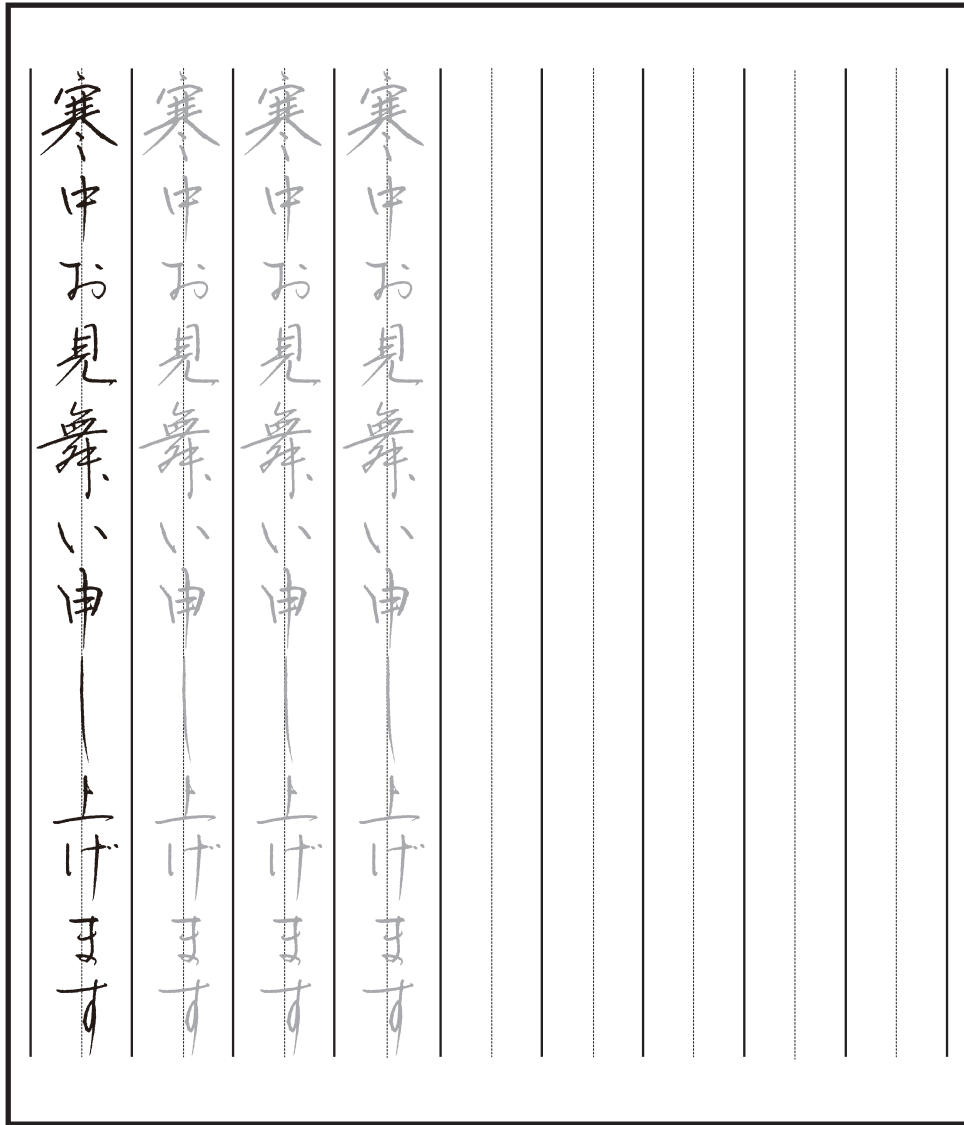 寒中お見舞い申し上げます
寒中お見舞い申し上げます
寒中お見舞い申し上げます
寒中お見舞い申し上げます